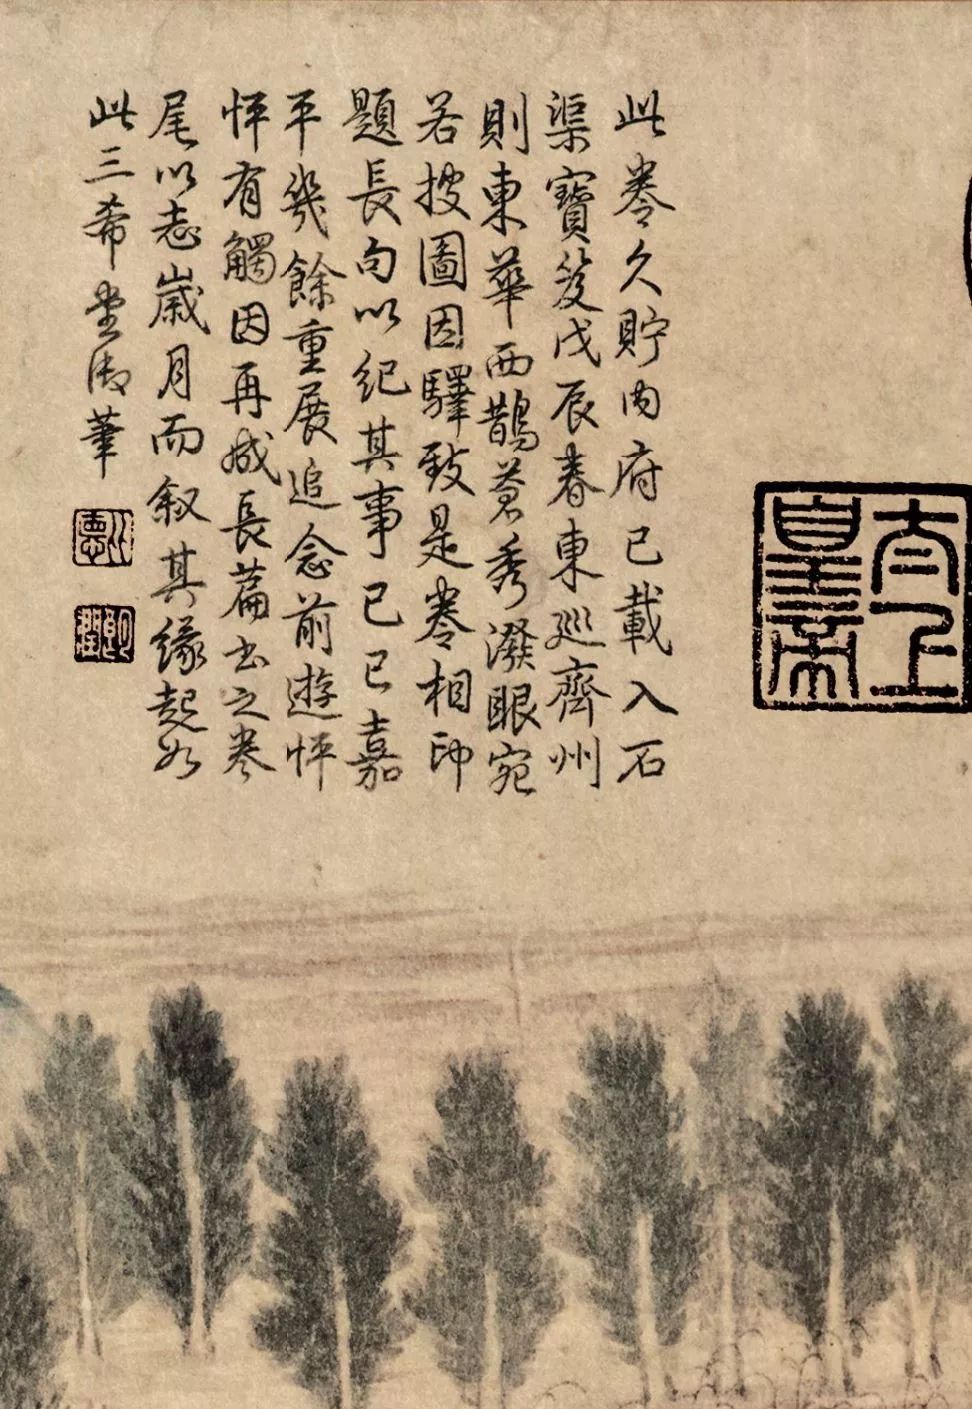 太上
皇帝
此卷久貯内府已載入石
渠寶笈戊辰春東巡齊州
則東華西鵲蒼秀潑眼宛
若披圖因驛致是卷相印
題長句以紀其事己巳嘉
平幾餘重展追念前遊怦
怦有觸因再成長篇書之卷
尾以志歲月而叙其緣起如
此三希堂御筆